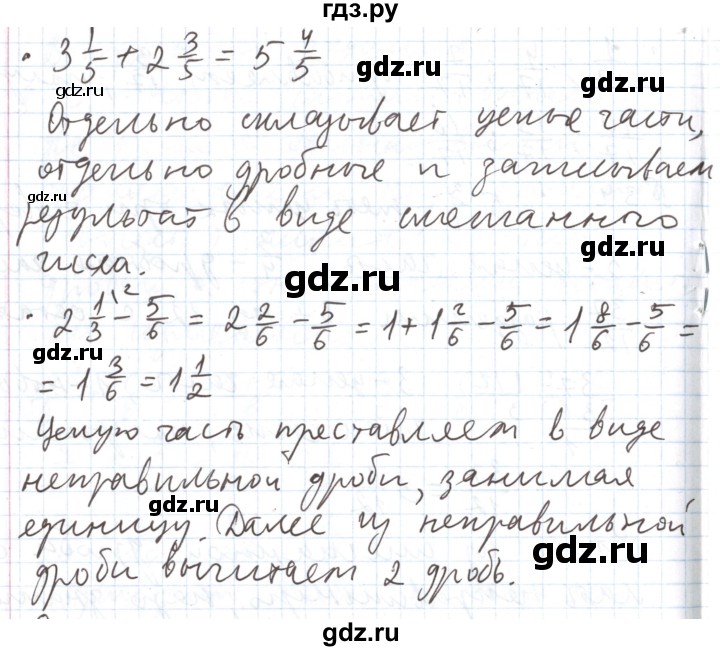 гдз.ру
• 3 1/5 + 2 3/5 = 5 4/5
gdz.ru
gdz.ru
Отдельно складывает целые части,
отдельно дробные и записываем
gdz.ru
результат в виде смешанного
gdz.ru
числа.
gdz.ru
• 2 1/3 \2 - 5/6 = 2 2/6 - 5/6 = 1 + 1 2/6 - 5/6 = 1 8/6 - 5/6 =
gdz.ru
gdz.ru
= 1 3/6 = 1 1/2
Целую часть преставляем в виде
неправильной дроби, занимая
gdz.ru
единицу. Далее из неправильной
gdz.ru
дроби вычитаем 2 дробь.
gdz.ru
gdz.ru